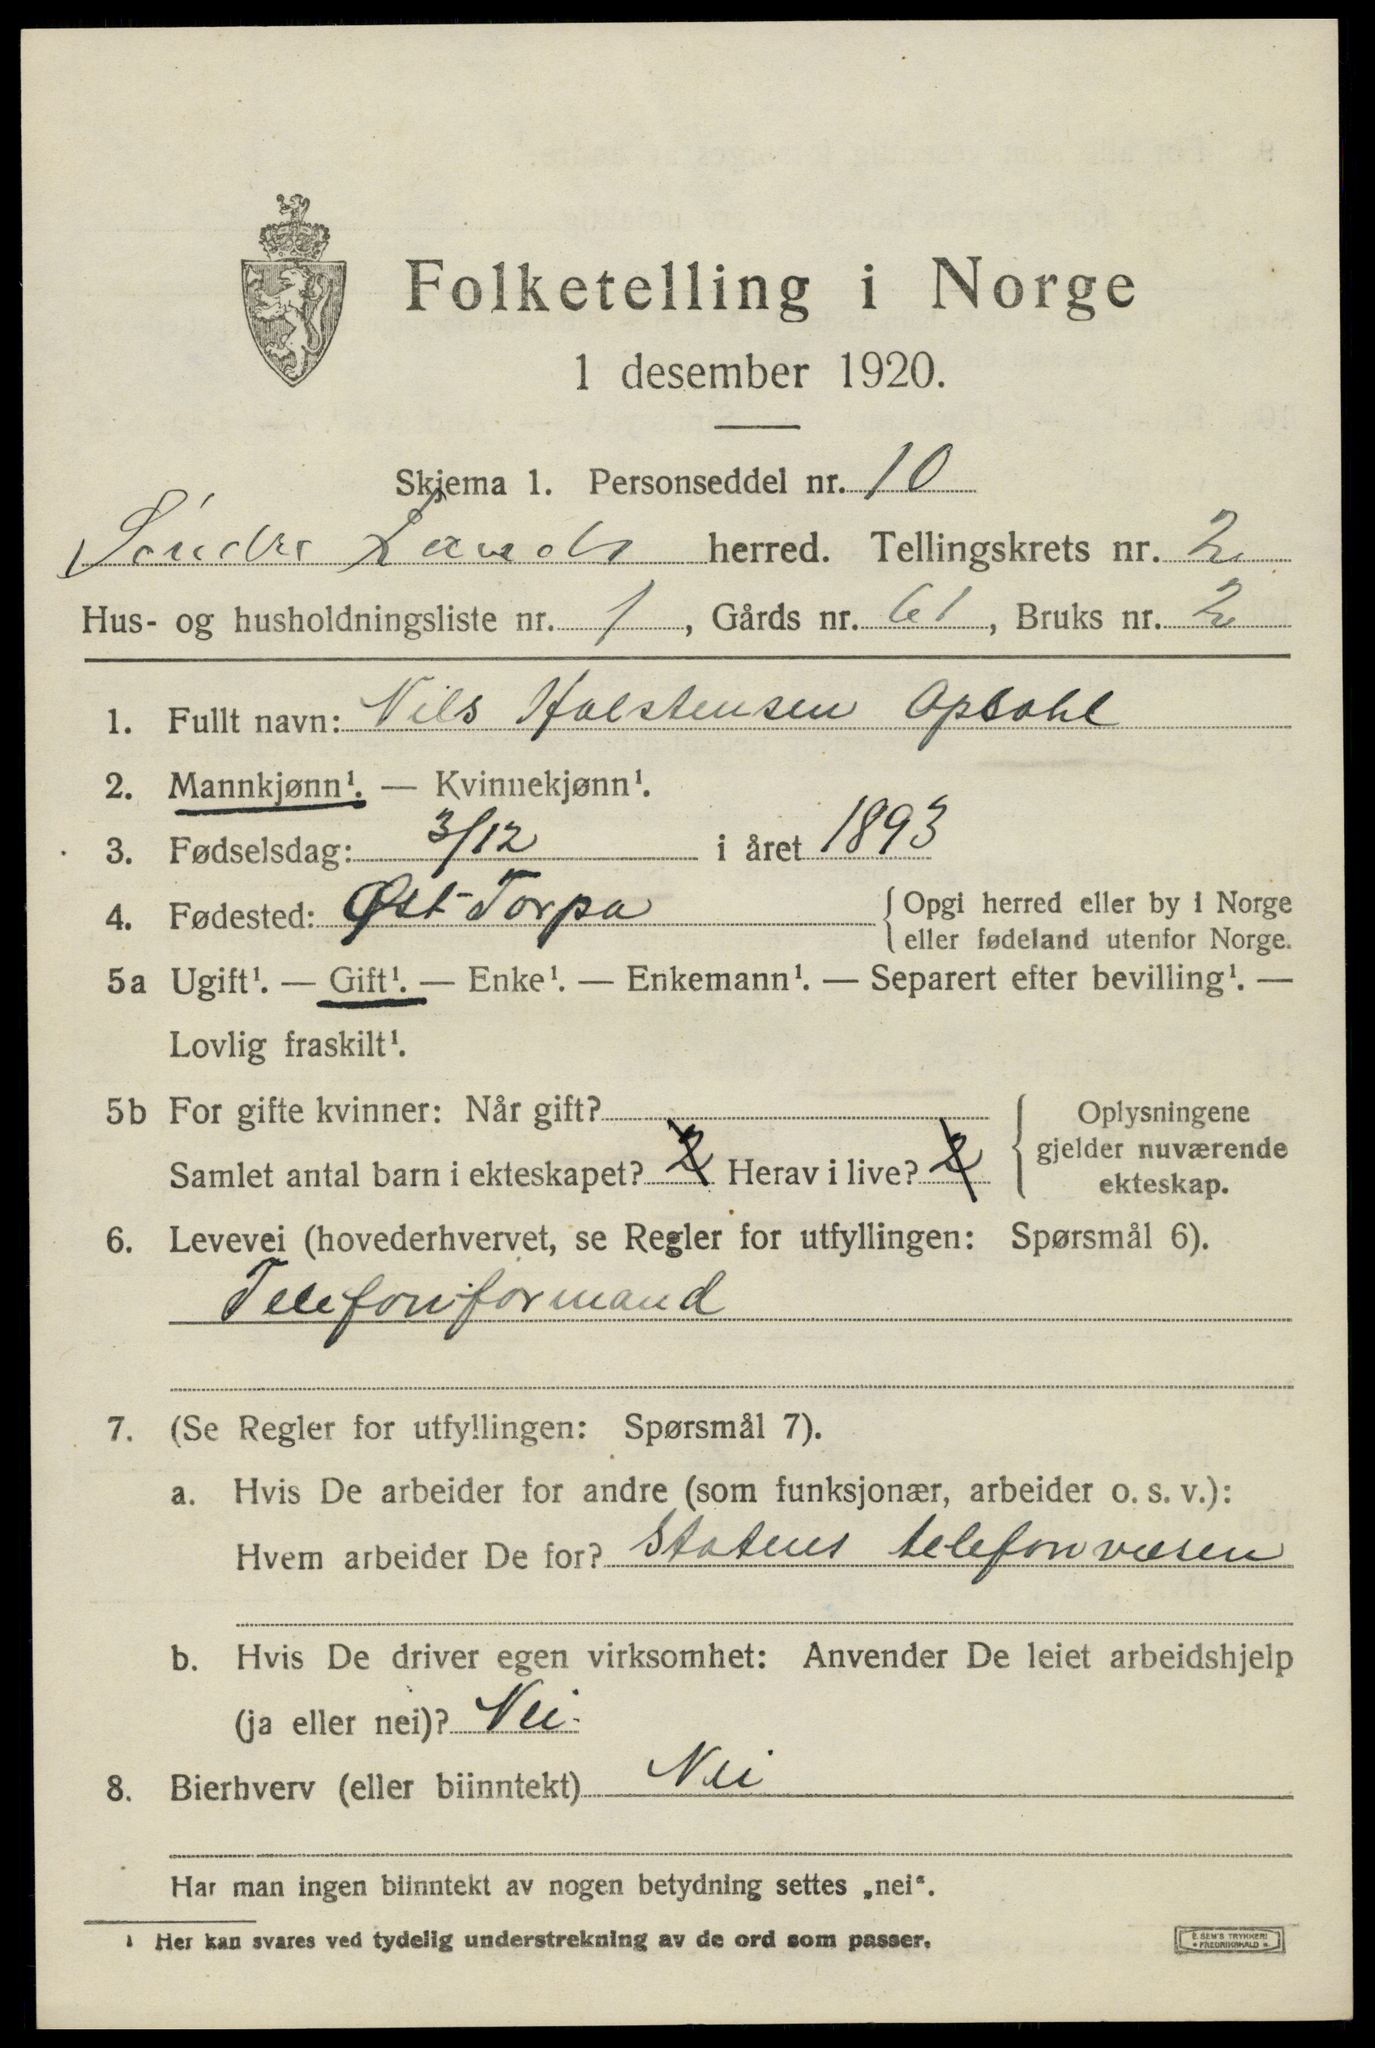 Folketelling i Norge
1 desember 1920.
Skjema 1. Personseddel nr. 10
Søndre Lands herred. Tellingskrets nr. 2
Hus- og husholdningsliste nr. 1, Gårds nr. 61, Bruks nr. 2
1. Fullt navn: Nils Halstensen Opsahl
2. Mannkjønn¹. — Kvinnekjønn¹.
3. Fødselsdag: 3/12 i året 1893
4. Fødested: Øst-Torpa { Opgi herred eller by i Norge
eller fødeland utenfor Norge.
5a Ugift¹. — Gift¹. — Enke¹. — Enkemann¹. — Separert efter bevilling¹. —
Lovlig fraskilt¹.
5b For gifte kvinner: Når gift?
Samlet antal barn i ekteskapet? 2 Herav i live? 2
Oplysningene
gjelder nuværende
ekteskap.
6. Levevei (hovederhvervet, se Regler for utfyllingen: Spørsmål 6).
Telefonformand
7. (Se Regler for utfyllingen: Spørsmål 7).
a. Hvis De arbeider for andre (som funksjonær, arbeider o. s. v.):
Hvem arbeider De for? Statens telefonvæsen
b. Hvis De driver egen virksomhet: Anvender De leiet arbeidshjelp
(ja eller nei)? Nei
8. Bierhverv (eller biinntekt) Nei
Har man ingen biinntekt av nogen betydning settes „nei“.
¹ Her kan svares ved tydelig understrekning av de ord som passer.
E. SEM'S TRYKKERI
FREDRIKSHALD